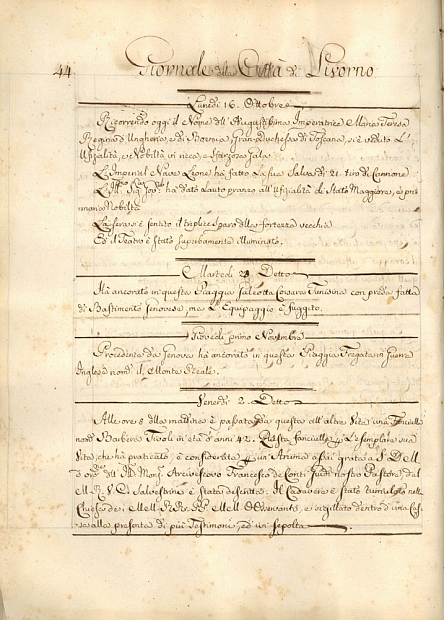 44 Giornale della Città di Livorno
Lunedì 16. Ottobre
Ricorrendo oggi il Nome dell'Augustissima Imperatrice Maria Teresa
Regina d'Ungheria, e di Boemia Gran-Duchessa di Toscana, si è veduto l'
Ufizialità, e Nobiltà in ricca, e sfarzosa Gala.
L'Imperial Nave Leone ha fatto la sua Salva di 21. tiro di Cannone
ha dato Lauto pranzo all'Ufizialità di Stato Maggiore, e pri
maria Nobiltà
La sera s'è sentito il triplice sparo delle fortezza vecchia
Ed il Teatro è stato superbamente illuminato.
Martedì Detto
Ha ancorato in questa Piaggia Galeotta Corsara Tunisina con preda fatta
di Bastimento Genovese, ma l'Equipaggio è fuggito.
Giovedì primo Novembre
Procedente da Genova ha ancorato in questa Piaggia Fregata in Guerra
Inglese nom: il Monte Reale.
Venerdì 2. Detto
Alle ore 8 della mattina è passata da questa all'altra Vita una fanciulla
nom: Barbera Tivoli in età d'anni 42. Questa fanciulla p l'esemplare sua
Vita, che ha praticato, è considerata p un'Anima assai grata a S. D. M.
d'ord: dell' Mons: Arcivescovo Francesco de Conti Guidi nostro Pastore, dal
M. R. P. D. Salvestrini è stata descritta. Il Cadavere è stato tumulato nella
Chiesa de M M. Osservanti, e sigillato dentro d'una Cas
sa alla presenza di più Testimoni, ed ivi sepolta